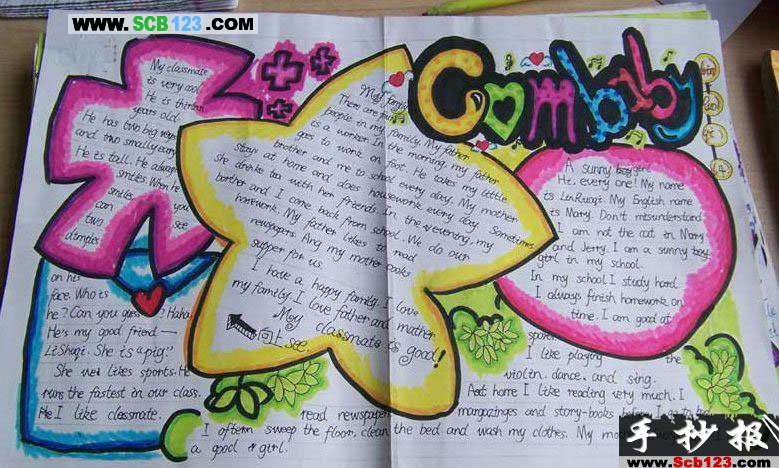 www.SCB123.com
Combaby
My classmate
is very cool
He is thirteen
years old.
He has two big eyes
and two small ears
He is tall. He always
smiles. When he
smiles you
can see
two
dimples
on his
face. Who is
he? Can you guess? Haha
He's my good friend —
LiShaqi. She is a pig?
She wei likes sports. He
runs the fastest in our class.
He I like classmate.
My family
There are
people in my family. My father
is a worker. In the morning, my father
goes to work on foot. He takes my little
brother and me to school every day. My mother
stays at home and does housework every day. Sometimes
she drinks tea with her friends. In the evening, my
borther and I come back from school. We do our
homework. My father likes to read
newspapers. And my mother cooks
supper for us.
I have a happy family. I love
my family. I love father and mother.
My classmate is good!
I see.
A sunny boy girl
Hi, every one! My name
is LinRuaqi. My English name
is Mary. Don't misunderstand
I am not the cat in Mary
and Jerry. I am a sunny boy
girl in my school.
In my school I study hard
I always finish homework on
time. I am good at
sports
I like playing the
violin, dance, and sing.
And home I like reading very much. I
read newspaper mangazinges and story-books before I go to bed
I oftern sweep the floor, clean the bed and wash my clothes. My
a good girl.
手抄报
www.Scb123.com